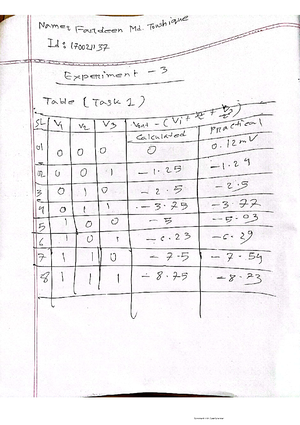 Name: Fardeen Md. Toushique
Id: 170021137
Experiment - 3
Table (Task 1)
SL V1 V2 V3 Vout = -(V1 + V2/2 + V3/4)
Calculated Practical
01 0 0 0 0 0.12mV
02 0 0 1 -1.25 -1.24
3 0 1 0 -2.5 -2.5
4 0 1 1 -3.75 -3.77
5 1 0 0 -5 -5.03
6 1 0 1 -6.23 -6.29
7 1 1 0 -7.5 -7.54
8 1 1 1 -8.75 -8.73